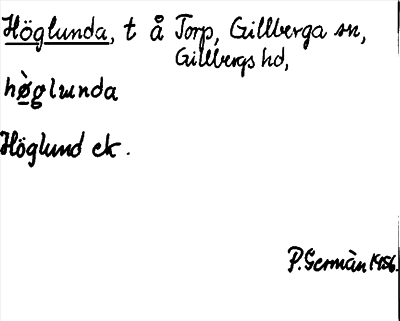 Höglunda, t å Torp, Gillberga sn,
Gillbergs hd,
hø̀glɯnda
Höglund ek.
P. Germàn 1956.